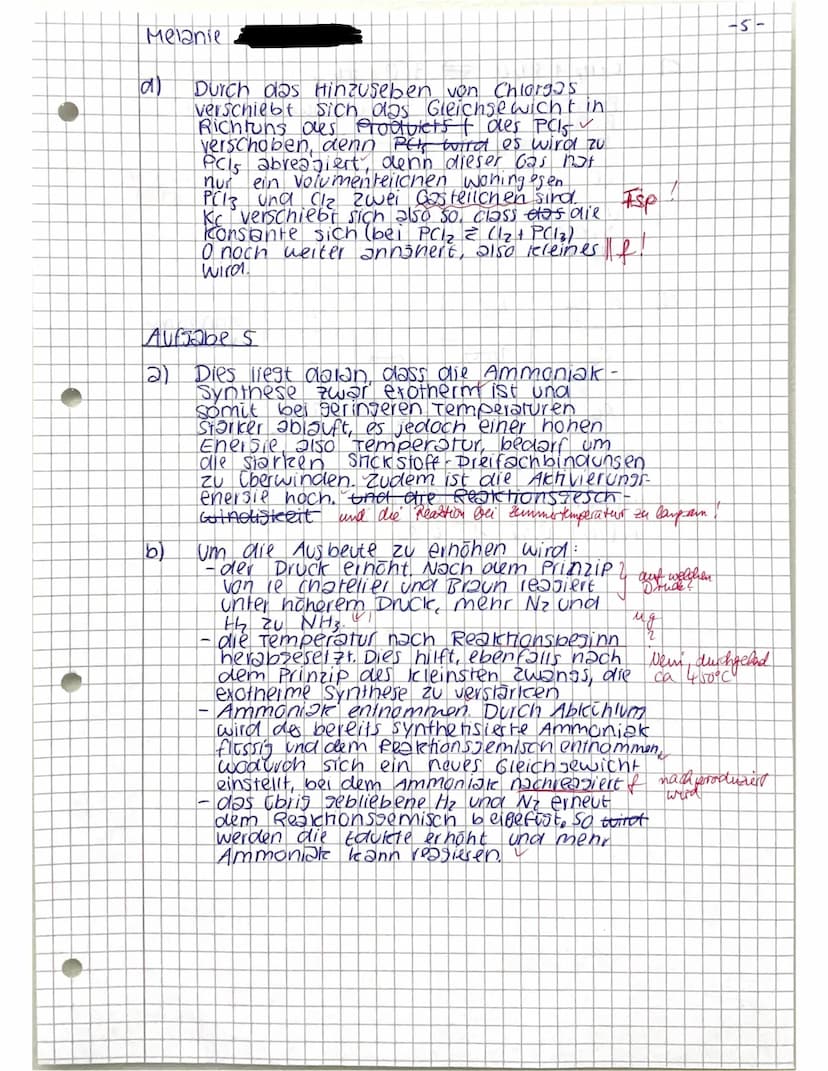 Melanie
-5-
d) Durch das Hinzugeben von Chlorgas
verschiebt sich das Gleichgewicht in
Richtung des Produkts f des PCl5 ✓
verschoben, denn PCl5 wird es wird zu
PCl5 abreagiert, denn dieser Gas hat
nur ein Volumenteilchen
PCl3 und Cl2 zwei Gasteilchen sind. Fsp!
Kc verschiebt sich also so, dass das die
Konstante sich (bei PCl2 ⇄ Cl2 + PCl3)
0 noch weiter annähert, also kleines f!
wird.
Aufgabe 5
a) Dies liegt daran, dass die Ammoniak-
Synthese zwar exotherm ist und
somit bei geringeren Temperaturen
stärker abläuft, es jedoch einer hohen
Energie, also Temperatur, bedarf um
die starken Stickstoff-Dreifachbindungen
zu überwinden. Zudem ist die Aktivierungs-
energie hoch. und die Reaktionsgesch-
windigkeit und die Reaktion bei Zimmertemperatur zu langsam!
b) Um die Ausbeute zu erhöhen wird:
- der Druck erhöht. Nach dem Prinzip
von le chatelier und Braun reagiert auf welchen Druck?
unter höherem Druck, mehr N2 und
H2 zu NH3. ✓!
- die Temperatur nach Reaktionsbeginn
herabgesetzt. Dies hilft, ebenfalls nach Nein, durchgehend
dem Prinzip des kleinsten Zwangs, die ca 450°C
exotherme Synthese zu verstärken
- Ammoniak entnommen. Durch Abkühlung
wird des bereits synthetisierte Ammoniak
flüssig und dem Reaktionsgemisch entnommen,
wodurch sich ein neues Gleichgewicht
einstellt, bei dem Ammoniak nachreagiert f nachproduziert wird
- das übrig gebliebene H2 und N2 erneut
dem Reaktionsgemisch beigefügt. So wird
werden die Edukte erhöht und mehr
Ammoniak kann reagieren. ✓